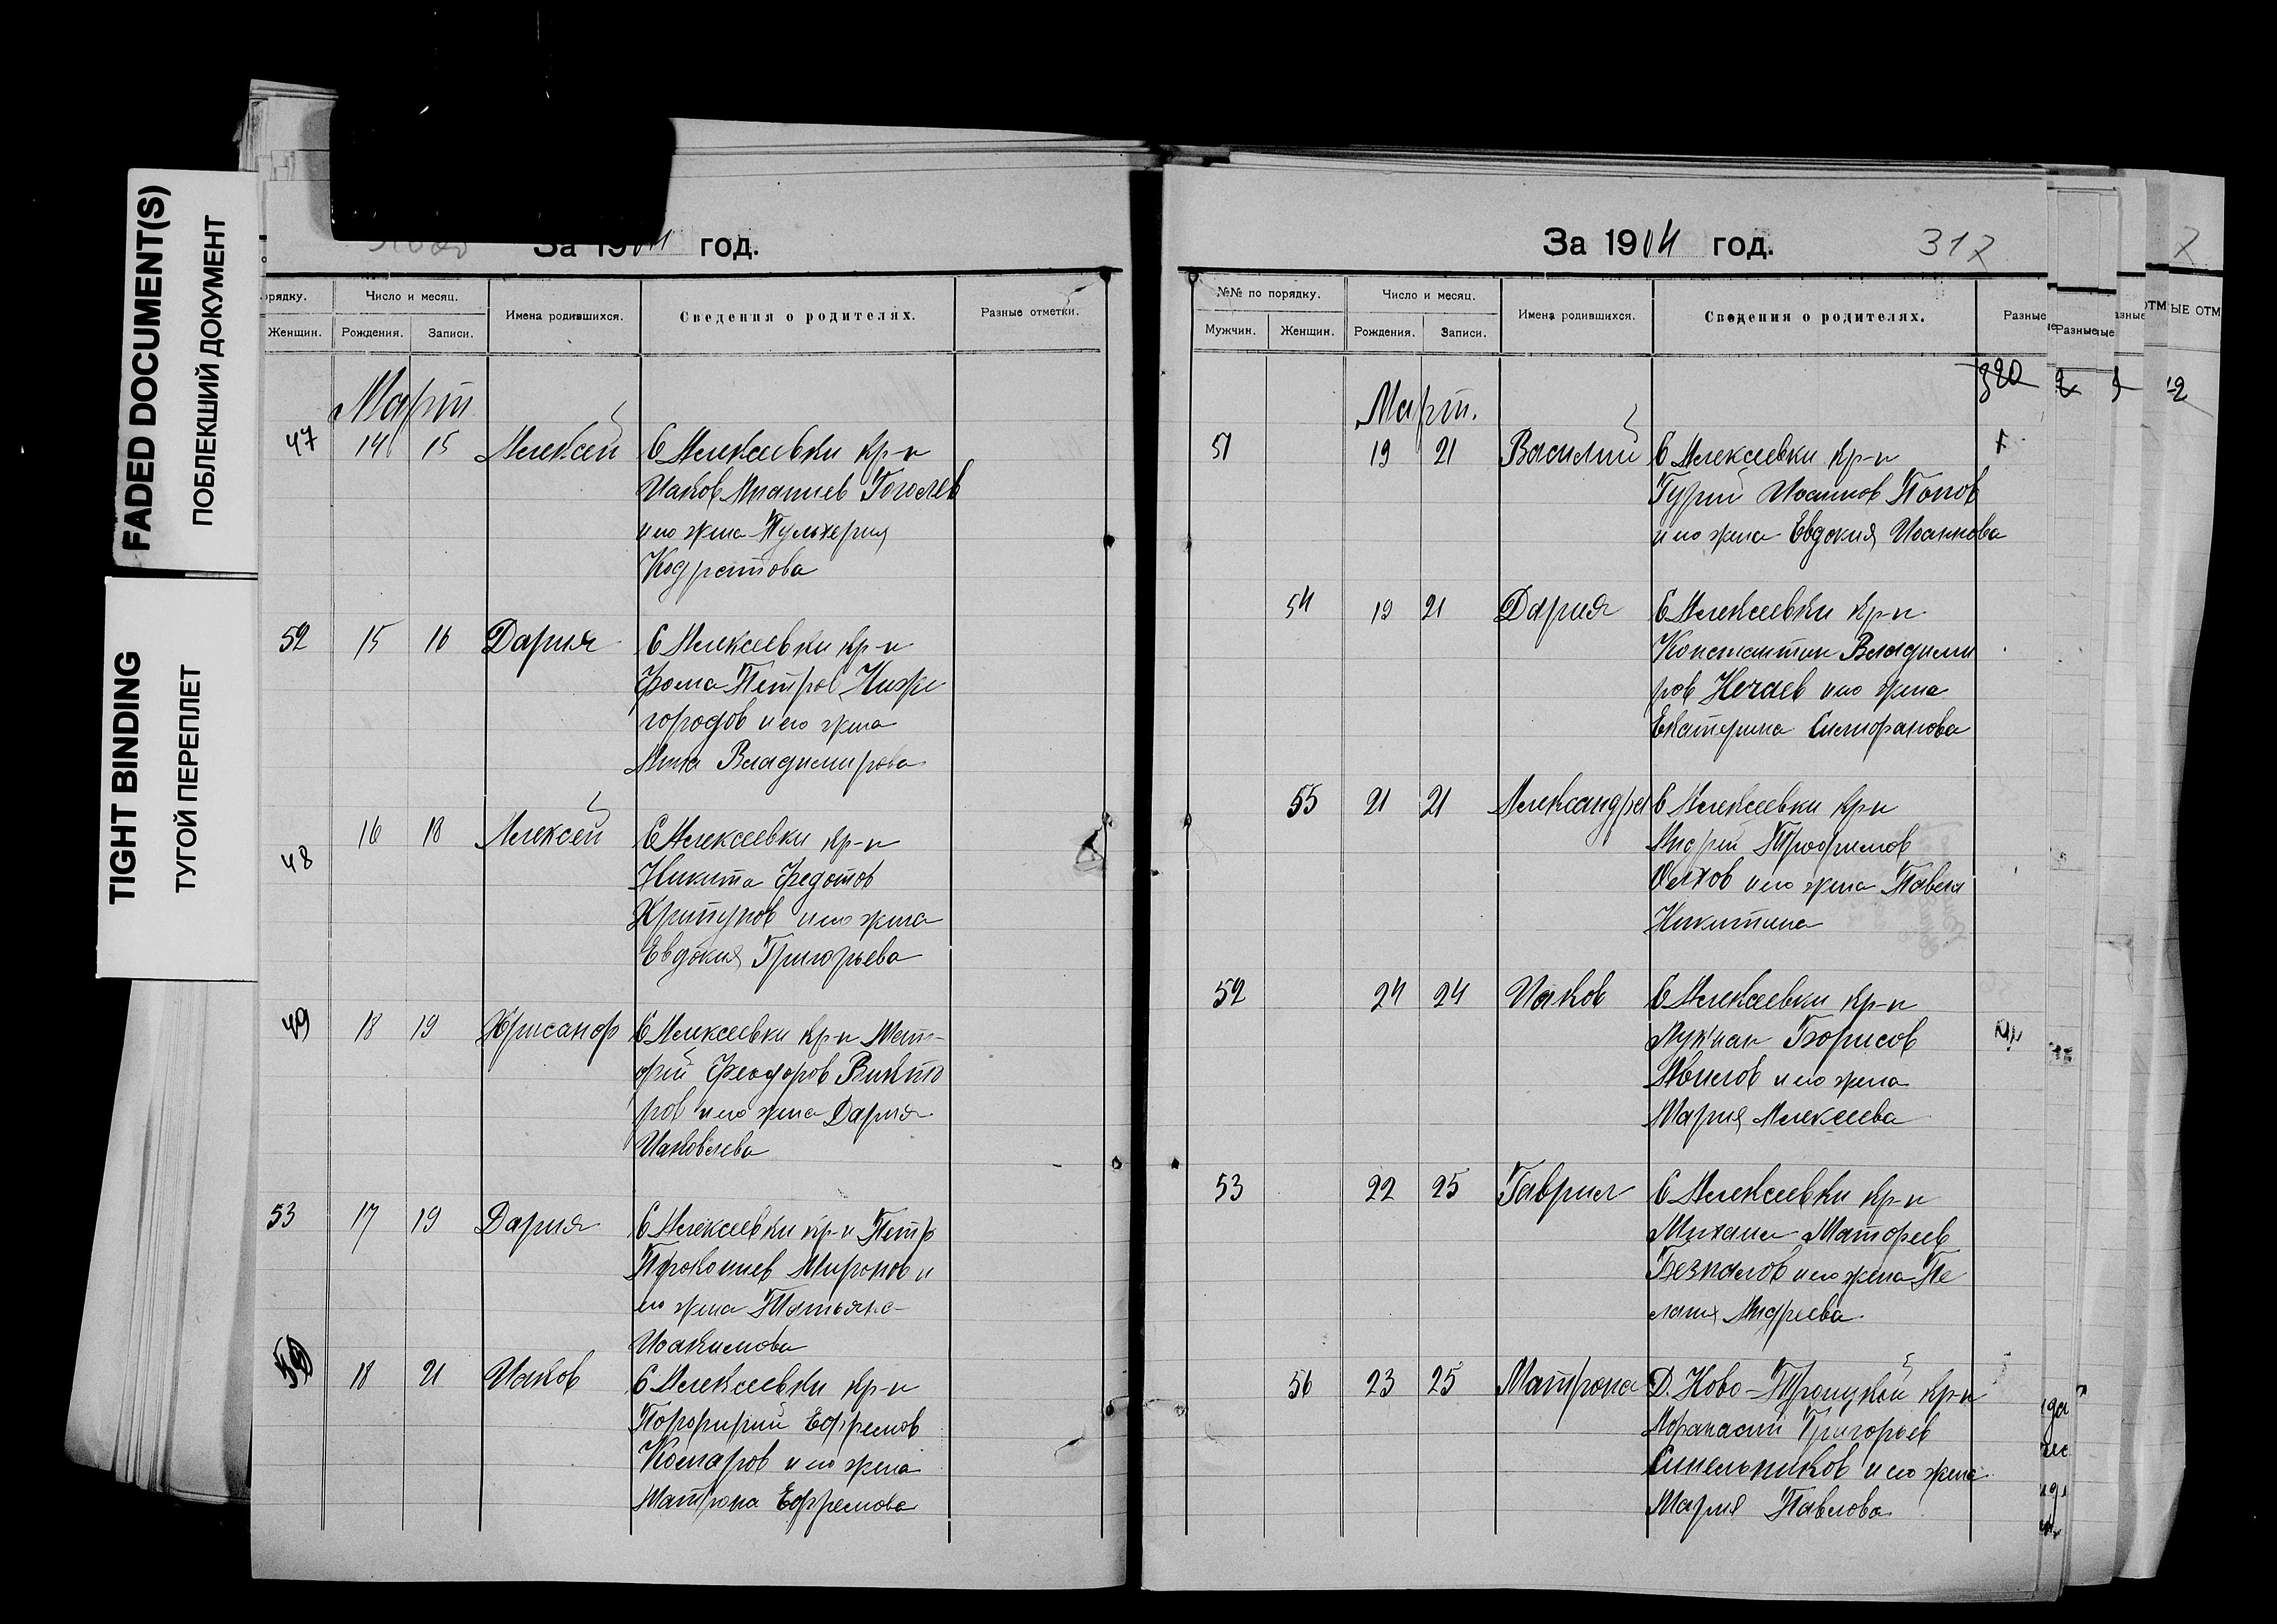 FADED DOCUMENT(S)
ПОБЛЕКШИЙ ДОКУМЕНТ
TIGHT BINDING
ТУГОЙ ПЕРЕПЛЕТ
За 1904 год.
Женщин. Число и месяц. Рождения. Записи. Имена родившихся. Сведения о родителях. Разные отметки.
Март
47 14 15 Алексей С Алексеевки кр-н
Иаков Ананиев Гоголев
и его жена Пульхерия
Кодратова
52 15 16 Дария С Алексеевки кр-н
Фома Петров Ниже
городов и его жена
Анна Владимирова
48 16 18 Алексей С Алексеевки кр-н
Никита Федотов
Хрипунов и его жена
Евдокия Григорьева
49 18 19 Хрисанф С Алексеевки кр-н Мат-
фей Феодоров Викто
ров и его жена Дария
Иаковлева
53 17 19 Дария С Алексеевки кр-н Петр
Прокопиев Миронов и
его жена Татьяна
Иоакимова
50 18 21 Иаков С Алексеевки кр-н
Порфирий Ефремов
Комаров и его жена
Матрона Ефремова
За 1904 год. 317
№№ по порядку. Мужчин. Женщин. Число и месяц. Рождения. Записи. Имена родившихся. Сведения о родителях. Разные
320
Март.
51 19 21 Василий С Алексеевки кр-н
Гурий Иоаннов Попов
и его жена Евдокия Иоаннова
54 19 21 Дария С Алексеевки кр-н
Константин Владими
ров Нечаев и его жена
Екатерина Симфорова
55 21 21 Александра С Алексеевки кр-н
Андрей Трофимов
и его жена Павла
Никитина
52 24 24 Иаков С Алексеевки кр-н
Лукиан Борисов
Авилов и его жена
Мария Алексеева
53 22 25 Гавриил С Алексеевки кр-н
Михаил Матфеев
Безпалов и его жена Пе
лагия Андреева
56 23 25 Матрона Д. Ново-Троицкой кр-н
Афанасий Григорьев
Синельников и его жена
Мария Павлова